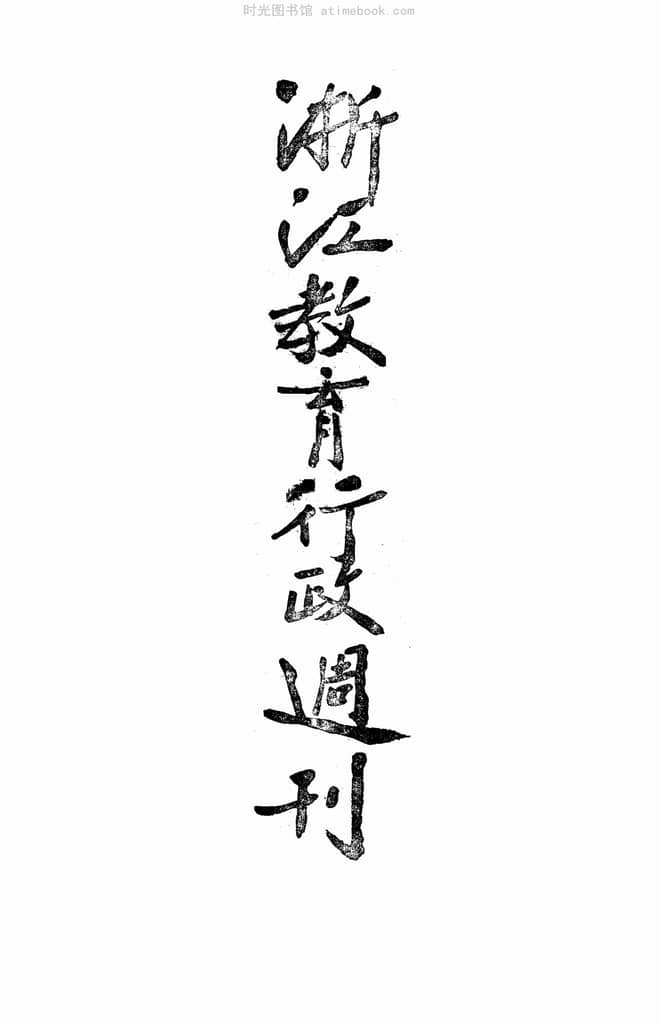 时光图书馆 atimebook.com
浙江教育行政週刊